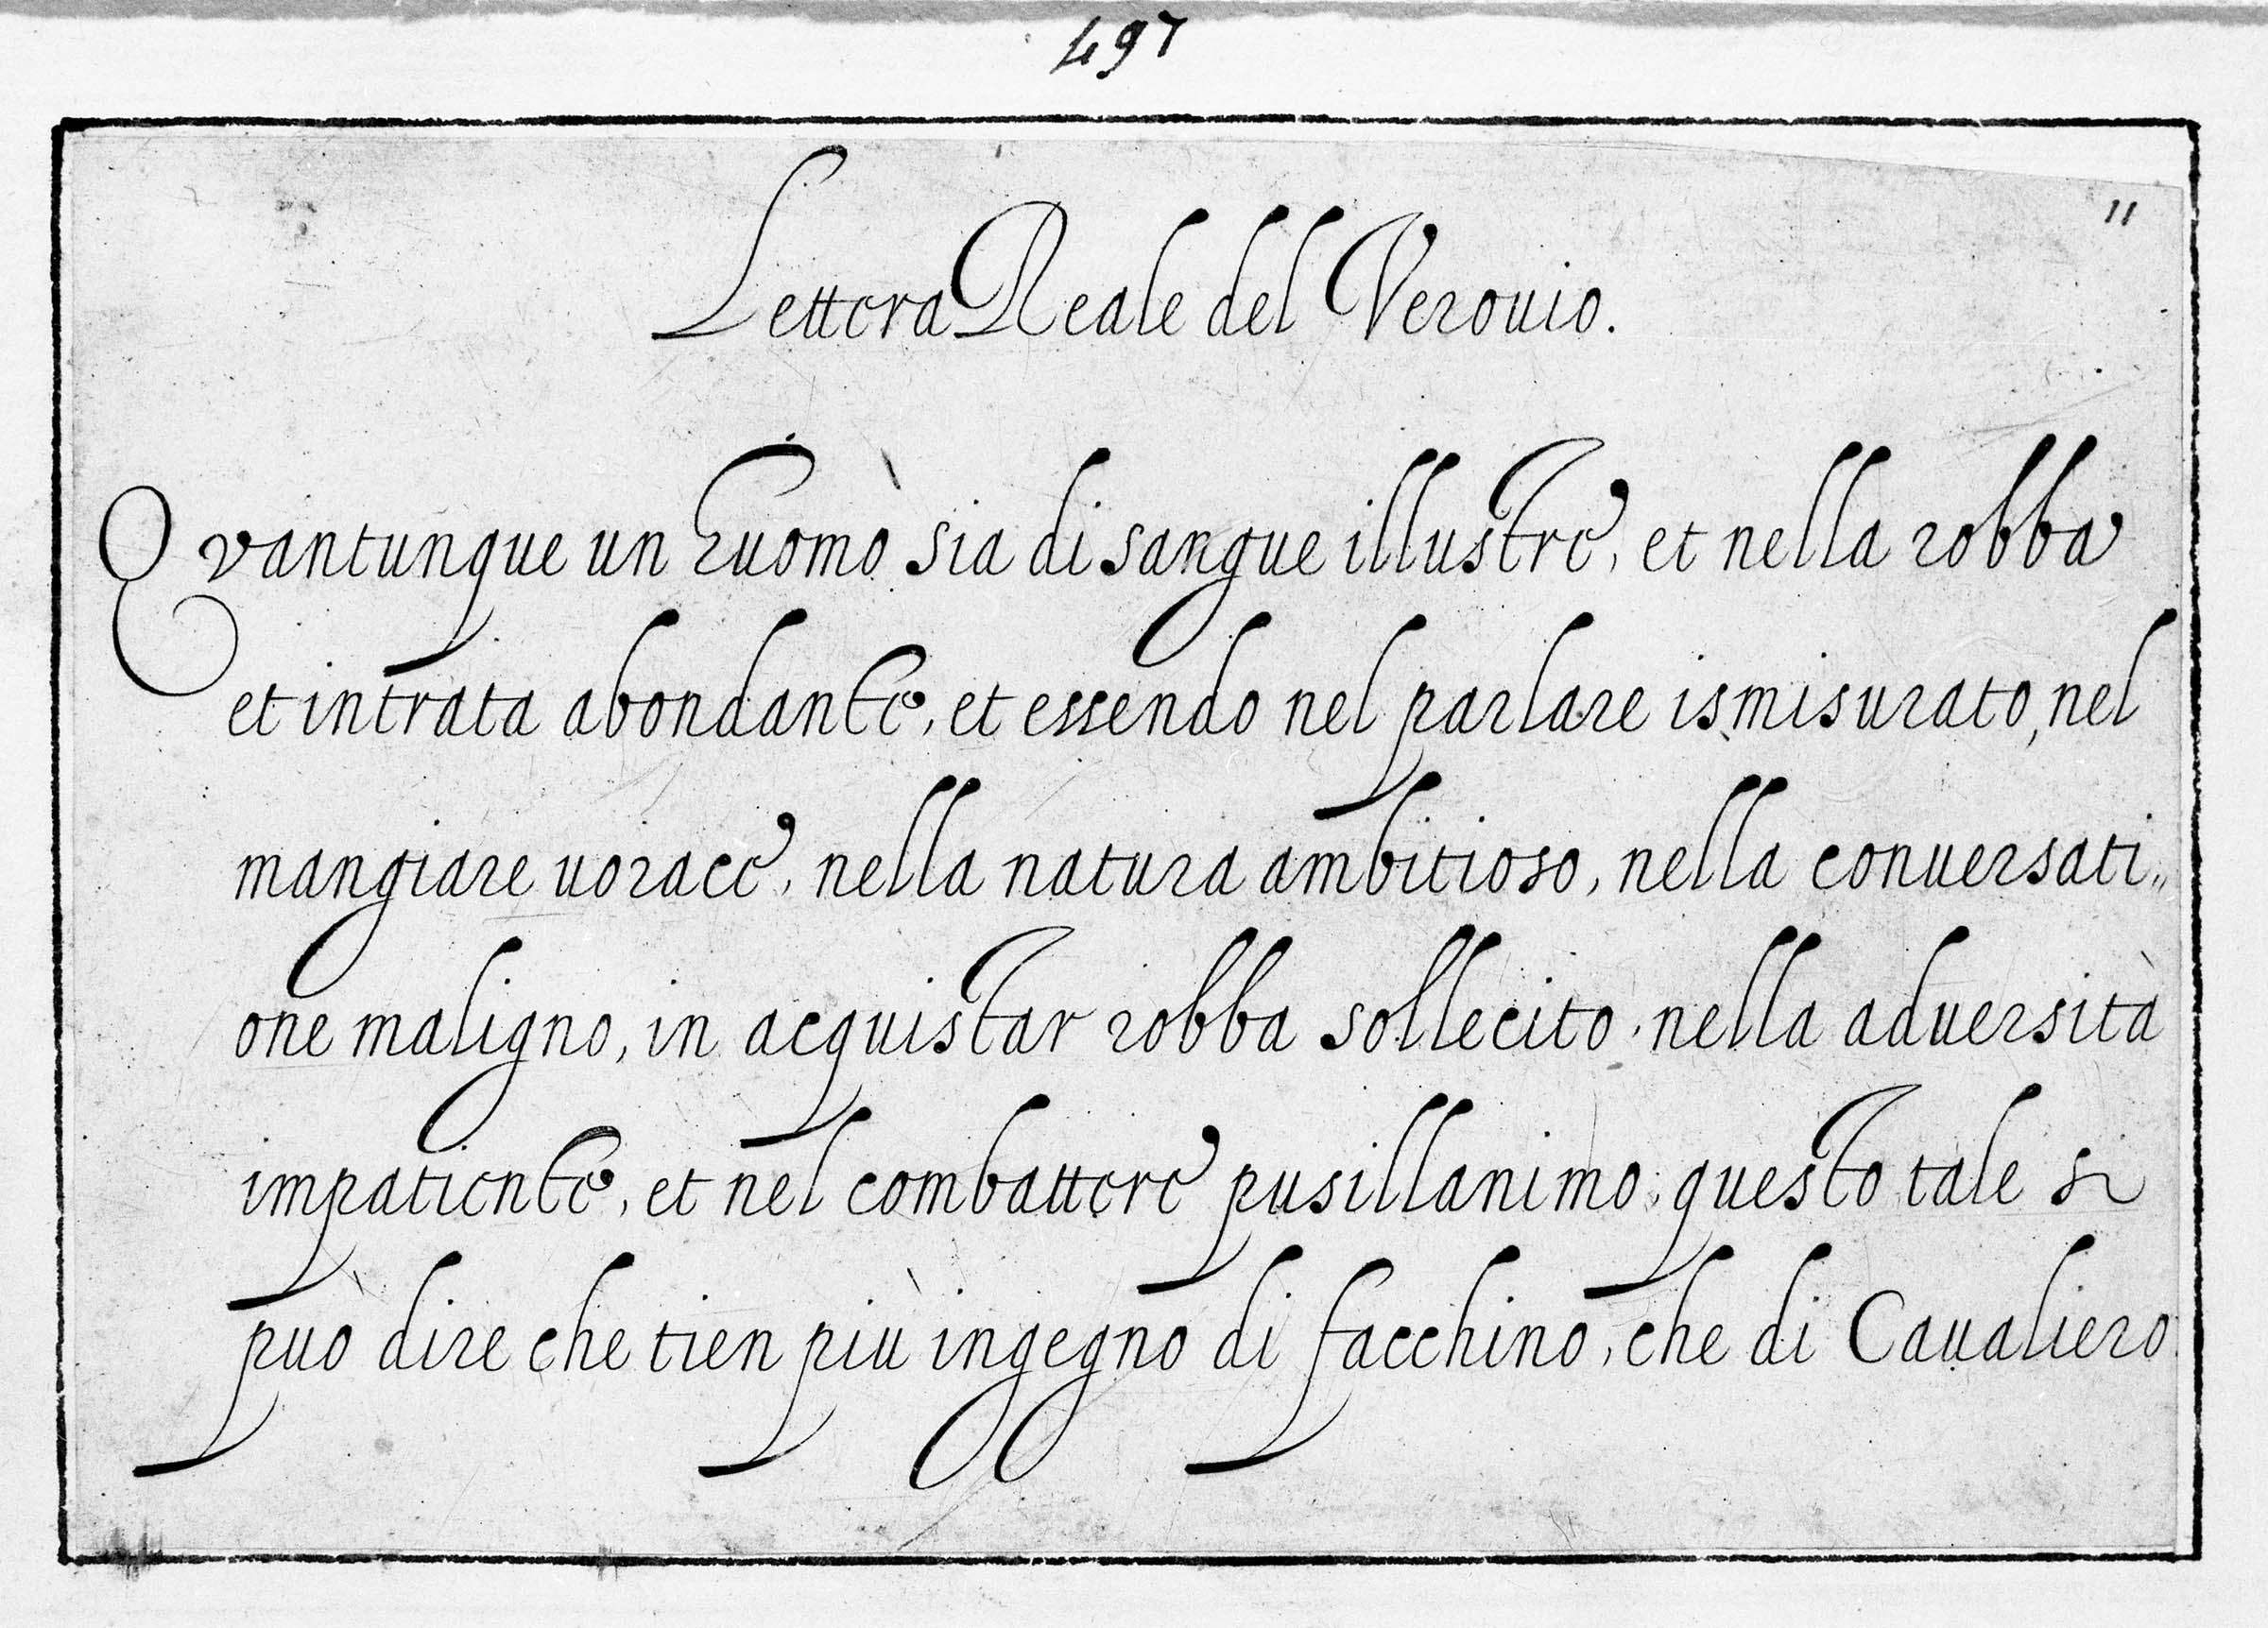 497
11
Lettera Reale del Verouio.
Qvantunque un huomò sia di sangue illustre, et nella robba
et intrata abondante, et essendo nel parlare ismisurato, nel
mangiare uorace, nella natura ambitioso, nella conuersati„
one maligno, in acquistar robba sollecito, nella aduersità
impatiente, et nel combattere pusillanimo, questo tale si
può dire che tien più ingegno di facchino, che di Caualiero.